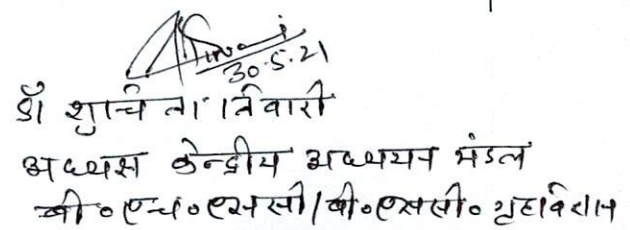 30.5.21
डॉ शुचिता तिवारी
अध्यक्ष केन्द्रीय अध्ययन मंडल
बी॰एच॰एससी/बी॰एससी॰ गृहविज्ञान